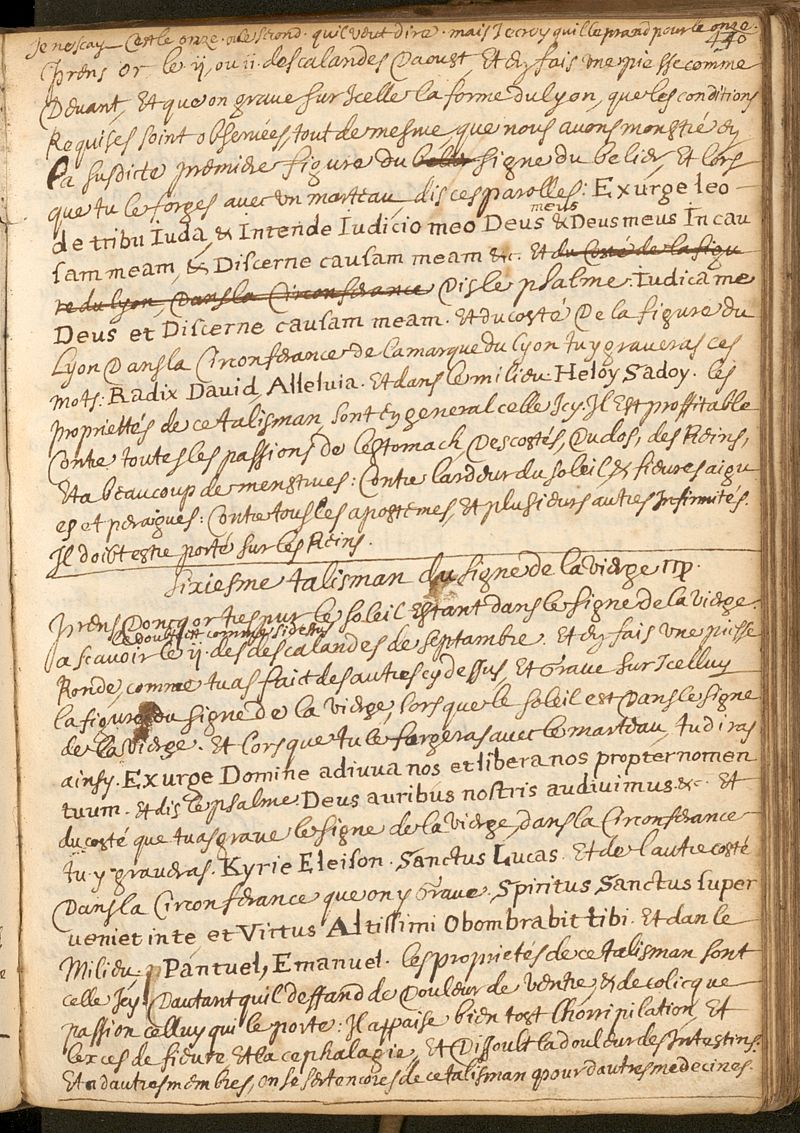 Je ne scay Cest le onze. ou le second. quil veut dire. mais Je croy quil le prand pour le onze.
440
Prens or le ij ou ii. des calandes Daoust Et ey fais une piesse comme
Devant, Et que on grave sur Icelle la forme du lyon, que les conditions
Requises soint observées, tout de mesme que nous avons monstré ey
La susdicte premiere figure du belier signe du belier, Et lors
que tu le forges avec un marteau, dis ces parolles: Exurge leo
de tribu Iuda, & Intende Iudicio meo Deus meus & Deus meus In cau
sam meam, & Discerne causam meam &c. Et du Costé de la figu
re du lyon, Dans la Circonferance Dis le psalme. Iudica me
Deus et Discerne causam meam. Et du costé De la figure du
Lyon Dans la Circonferance de la marque du lyon tu y graveras ces
mots: Radix David Alleluia. Et dans le milieu. Heloy Sadoy. les
proprietés de ce talisman, sont ey general celle Icy: Il Est proffitable
Contre toutes les passions de lestomach, Des costés, Du dos, des Reins,
Et a beaucoup de menstrues: Contre lardeur du soleil, & fievres aigu
es et peraigues: Contre tous les apostemes, Et plusieurs autres Infirmités.
Il doibt estre porté sur les Reins.
Sixiesme talisman du signe de la vierge ♍.
Prens Doncq or tres pur le soleil Estant dans le signe de la vierge.
le double ii comme sidessus
a scavoir le ij. des des calandes de septambre. Et ey fais une piesse
Ronde, comme tu as faict des autres cy dessus, Et Grave sur Icelluy
la figure du signe de la vierge, lors que le soleil est Dans le signe
de la vierge. Et lors que tu le forgeras avec le marteau, tu diras
ainsy. Exurge Domine adiuva nos et libera nos propter nomen
tuum. Et dis le psalme. Deus auribus nostris audivimus &c. Et
du costé que tu as grave le signe de la vierge, dans la Circonferance
tu y graveras. Kyrie Eleison. Sanctus Lucas. Et de lautre costé
Dans la Circonferance que on y Grave. Spiritus Sanctus super
veniet in te, et Victus Altissimi Obombrabit tibi. Et dan le
Milieu. Pantuel, Emanuel. les proprietes de ce talisman sont
celle Icy. Dautant quil deffand de Douleur de ventre, & de colicque
passion celluy qui le porte: Il appaise bien tost lhorripilation, Et
lexces de fievre Et la cephalagie, Et Dissoult la douleur des Intestins.
Et a dautres membres, on se sert encores de ce talisman pour dautres medecines.